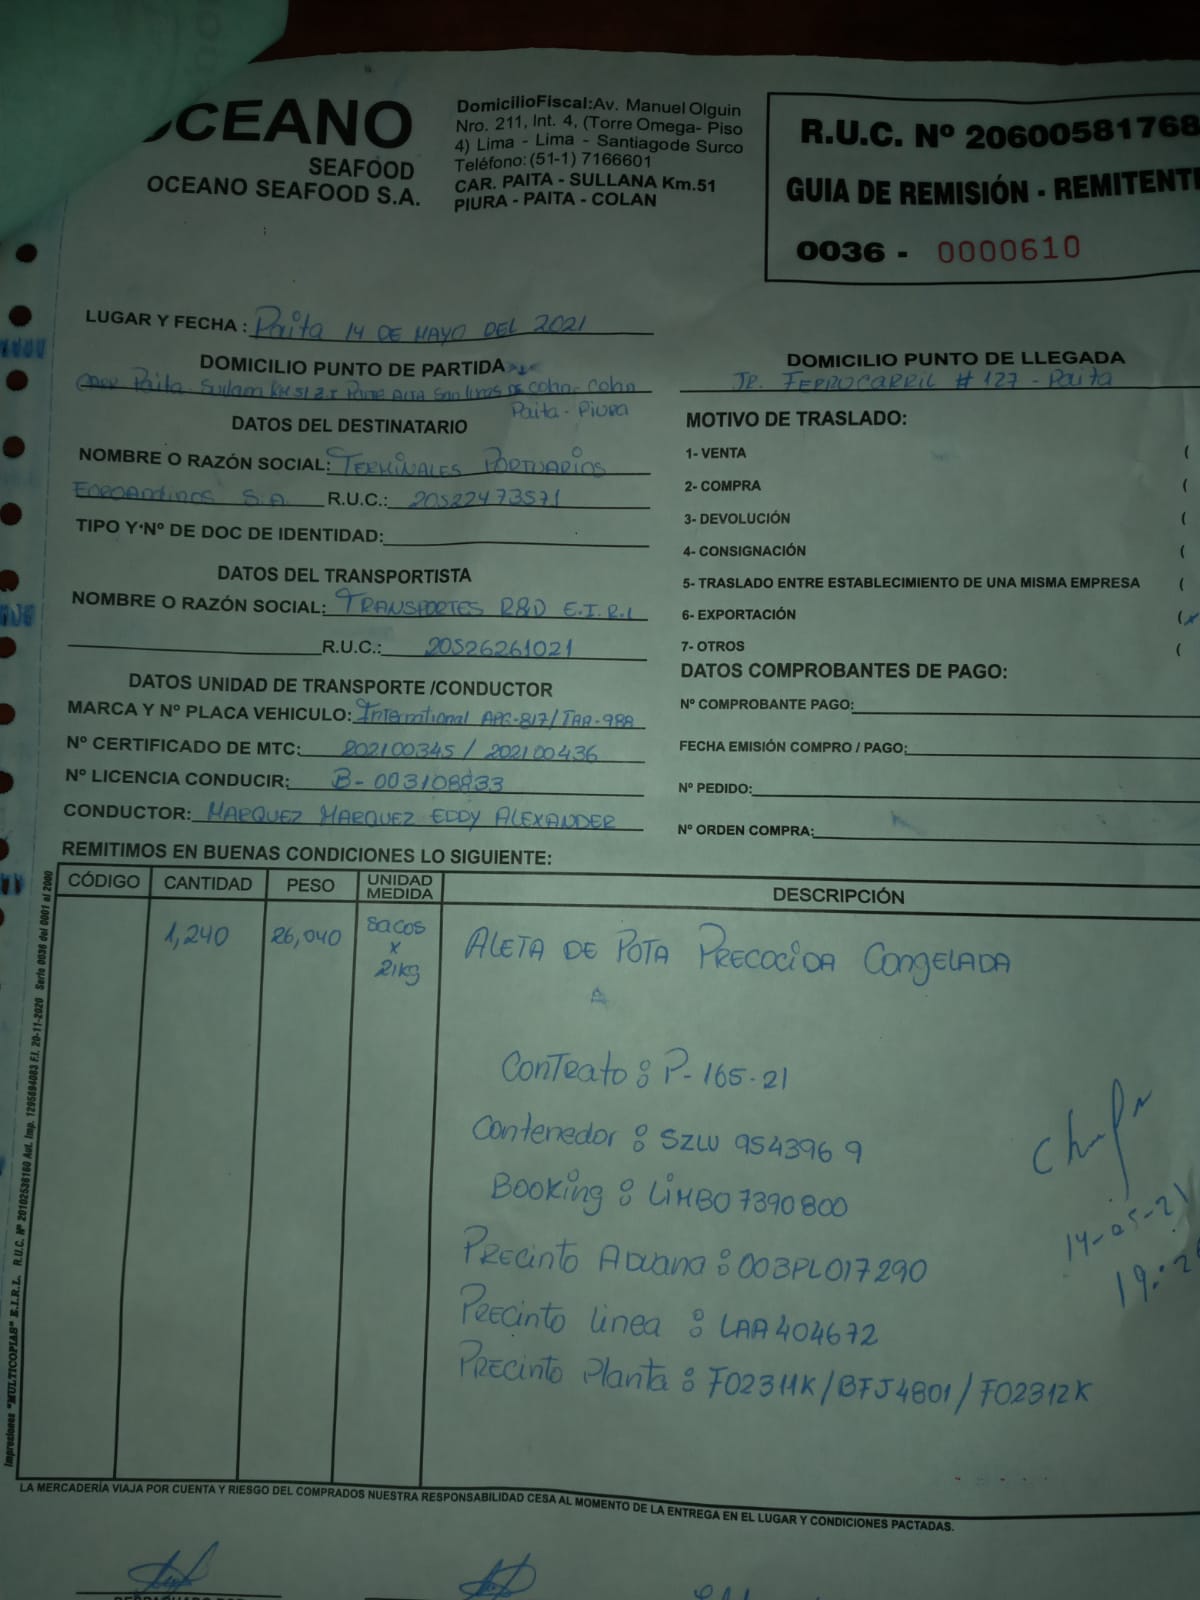 OCEANO
SEAFOOD
OCEANO SEAFOOD S.A.
DomicilioFiscal:Av. Manuel Olguin
Nro. 211, Int. 4, (Torre Omega- Piso
4) Lima - Lima - Santiagode Surco
Teléfono:(51-1) 7166601
CAR. PAITA - SULLANA Km.51
PIURA - PAITA - COLAN
R.U.C. Nº 20600581768
GUIA DE REMISIÓN - REMITENTE
0036 - 0000610
LUGAR Y FECHA : Paita 14 DE MAYO DEL 2021
DOMICILIO PUNTO DE PARTIDA
Paita Sullana KM 51 Z.I Parte Alta San Lucas de Colan- Colan
Paita - Piura
DOMICILIO PUNTO DE LLEGADA
Jr. Ferrocarril # 127 - Paita
DATOS DEL DESTINATARIO
NOMBRE O RAZÓN SOCIAL: Terminales Portuarios
Euroandinos S.A. R.U.C.: 20522473571
TIPO Y Nº DE DOC DE IDENTIDAD:
MOTIVO DE TRASLADO:
1- VENTA (
2- COMPRA (
3- DEVOLUCIÓN (
4- CONSIGNACIÓN (
5- TRASLADO ENTRE ESTABLECIMIENTO DE UNA MISMA EMPRESA (
6- EXPORTACIÓN (x
7- OTROS (
DATOS DEL TRANSPORTISTA
NOMBRE O RAZÓN SOCIAL: Transportes R&D E.I.R.L
R.U.C.: 20526261021
DATOS COMPROBANTES DE PAGO:
Nº COMPROBANTE PAGO:
FECHA EMISIÓN COMPRO / PAGO:
Nº PEDIDO:
Nº ORDEN COMPRA:
DATOS UNIDAD DE TRANSPORTE /CONDUCTOR
MARCA Y Nº PLACA VEHICULO: International
Nº CERTIFICADO DE MTC: 202100345 / 202100436
Nº LICENCIA CONDUCIR: B- 003108833
CONDUCTOR: MARQUEZ MARQUEZ EDDY ALEXANDER
REMITIMOS EN BUENAS CONDICIONES LO SIGUIENTE:
CÓDIGO CANTIDAD PESO UNIDAD MEDIDA DESCRIPCIÓN
1,240 26,040 sacos x 21kg ALETA DE POTA PRECOCIDA CONGELADA
Contrato : P- 165-21
Contenedor : SZLU 954396 9
Booking : LIMB07390800
Precinto Aduana : 003PL017290
Precinto linea : LAA404672
Precinto Planta : F02311K / BFJ4801 / F02312K
14-05-21
LA MERCADERÍA VIAJA POR CUENTA Y RIESGO DEL COMPRADOS NUESTRA RESPONSABILIDAD CESA AL MOMENTO DE LA ENTREGA EN EL LUGAR Y CONDICIONES PACTADAS.
Impresiones "MULTICOPIAS" E.I.R.L. R.U.C. Nº 20102536160 Aut. Imp. 1295694083 F.I. 20-11-2020 Serie 0036 del 0001 al 2000